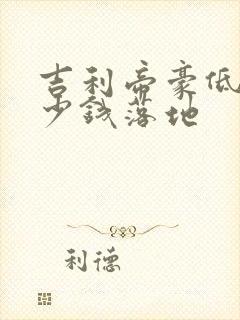 吉利帝豪低
少钱落地
利德